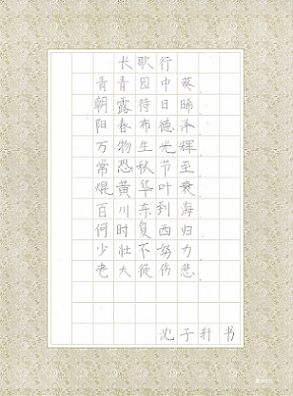 长歌行
青青园中葵.
朝露待日晞.
阳春布德泽
万物生光辉.
常恐秋节至
焜黄华叶衰.
百川东到海
何时复西归.
少壮不努力
老大徒伤悲.
沈子轩 书